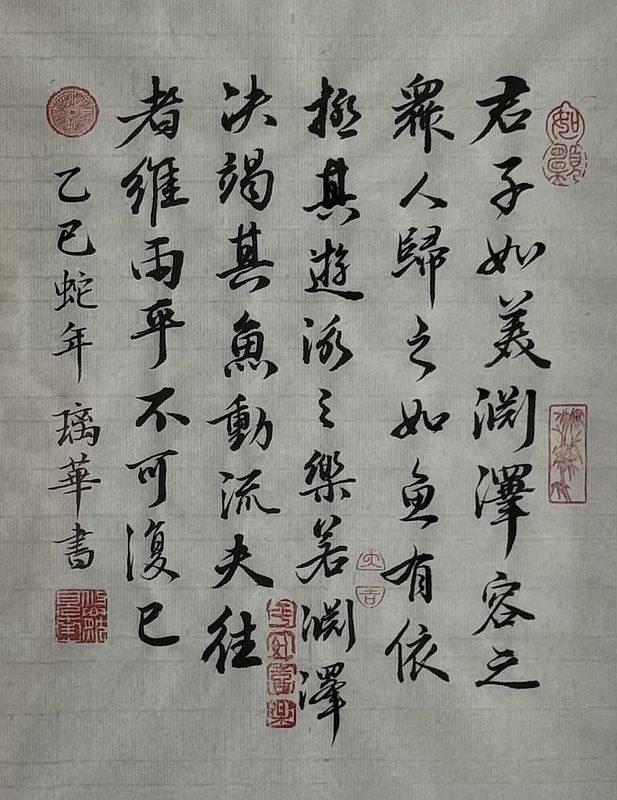 如願
君子如美淵澤容之
衆人歸之如魚有依
大吉
極其遊泳之樂若淵澤
平安喜樂
決竭其魚動流夫往
者維雨乎不可復已
乙巳蛇年 璃華書